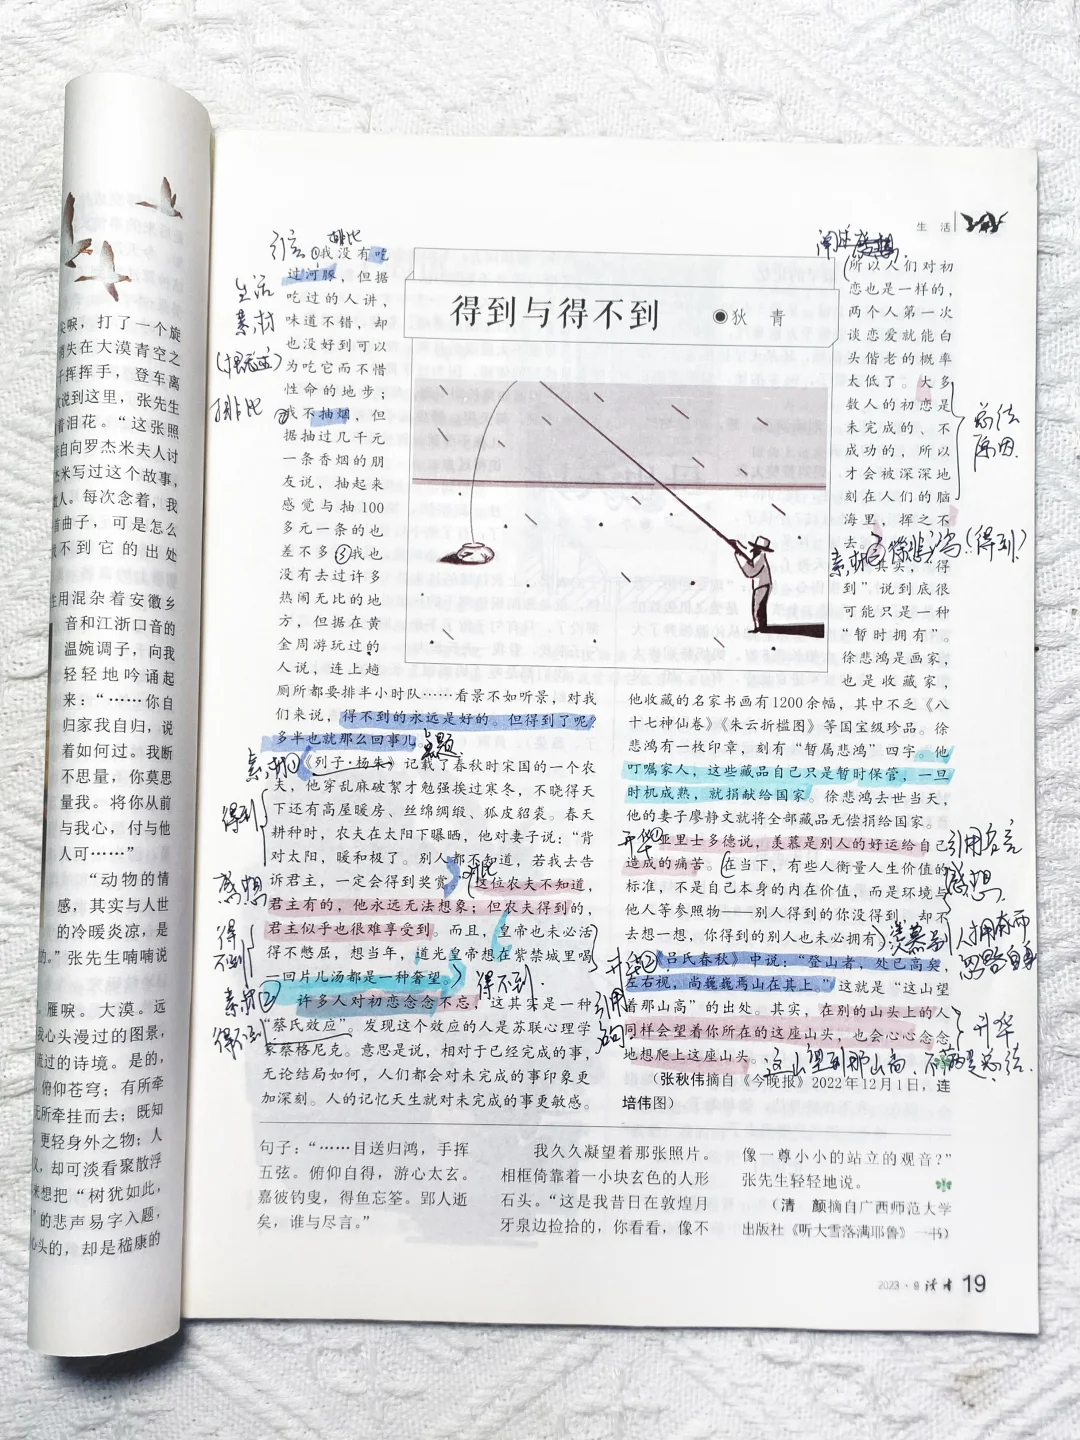 尖唳，打了一个旋
消失在大漠青空之
子挥挥手，登车离
次说到这里，张先生
着泪花。“这张照
亲自向罗杰米夫人讨
杰米写过这个故事，
故人。每次念着，我
首曲子，可是怎么
找不到它的出处
生用混杂着安徽乡
音和江浙口音的
温婉调子，向我
轻轻地吟诵起
来：“……你自
归家我自归，说
着如何过。我断
不思量，你莫思
量我。将你从前
与我心，付与他
人可……”
“动物的情
感，其实与人世
的冷暖炎凉，是
的。”张先生喃喃说
雁唳。大漠。远
我心头漫过的图景，
流过的诗境。是的，
俯仰苍穹；有所牵
无所牵挂而去；既知
更轻身外之物；人
义，却可淡看聚散浮
来想把“树犹如此，
”的悲声易字入题，
心头的，却是嵇康的
生活
得到与得不到
◉狄 青
引言
排比
生活
素材
排比
①我没有吃
过河豚，但据
吃过的人讲，
味道不错，却
也没好到可以
为吃它而不惜
性命的地步；
②我不抽烟，但
据抽过几千元
一条香烟的朋
友说，抽起来
感觉与抽100
多元一条的也
差不多③我也
没有去过许多
热闹无比的地
方，但据在黄
金周游玩过的
人说，连上趟
厕所都要排半小时队……看景不如听景，对我
们来说，得不到的永远是好的。但得到了呢？
多半也就那么回事儿。
点题
素材①
《列子·杨朱》记载了春秋时宋国的一个农
夫，他穿乱麻破絮才勉强挨过寒冬，不晓得天
下还有高屋暖房、丝绵绸缎、狐皮貂裘。春天
得到
耕种时，农夫在太阳下曝晒，他对妻子说：“背
对太阳，暖和极了。别人都不知道，若我去告
诉君主，一定会得到奖赏。”
对比
这位农夫不知道，
感想
君主有的，他永远无法想象；但农夫得到的，
君主似乎也很难享受到。而且，皇帝也未必活
得
不到
得不憋屈，想当年，道光皇帝想在紫禁城里喝
一回片儿汤都是一种奢望。
得不到
素材②
许多人对初恋念念不忘，这其实是一种
得不到
“蔡氏效应”。发现这个效应的人是苏联心理学
家蔡格尼克。意思是说，相对于已经完成的事，
无论结局如何，人们都会对未完成的事印象更
加深刻。人的记忆天生就对未完成的事更敏感。
所以人们对初
恋也是一样的，
两个人第一次
谈恋爱就能白
头偕老的概率
太低了。大多
数人的初恋是
未完成的、不
成功的，所以
才会被深深地
刻在人们的脑
海里，挥之不
去。
总结
原因
素材③徐悲鸿(得到)
其实，“得
到”说到底很
可能只是一种
“暂时拥有”。
徐悲鸿是画家，
也是收藏家，
他收藏的名家书画有1200余幅，其中不乏《八
十七神仙卷》《朱云折槛图》等国宝级珍品。徐
悲鸿有一枚印章，刻有“暂属悲鸿”四字。他
叮嘱家人，这些藏品自己只是暂时保管，一旦
时机成熟，就捐献给国家。徐悲鸿去世当天，
他的妻子廖静文就将全部藏品无偿捐给国家。
升华①
亚里士多德说，羡慕是别人的好运给自己
引用名言
造成的痛苦。在当下，有些人衡量人生价值的
感想
标准，不是自己本身的内在价值，而是环境与
他人等参照物——别人得到的你没得到，却不
去想一想，你得到的别人也未必拥有。
羡慕别
人拥有而
忽略自身
升华②
《吕氏春秋》中说：“登山者，处已高矣，
左右视，尚巍巍焉山在其上。”这就是“这山望
引用
句
着那山高”的出处。其实，在别的山头上的人
同样会望着你所在的这座山头，也会心心念念
升华
地想爬上这座山头。
这山望到那山高。
总结
（张秋伟摘自《今晚报》2022年12月1日，连
培伟图）
句子：“……目送归鸿，手挥
五弦。俯仰自得，游心太玄。
嘉彼钓叟，得鱼忘筌。郢人逝
矣，谁与尽言。”
我久久凝望着那张照片。
相框倚靠着一小块玄色的人形
石头。“这是我昔日在敦煌月
牙泉边捡拾的，你看看，像不
像一尊小小的站立的观音？”
张先生轻轻地说。
（清 颜摘自广西师范大学
出版社《听大雪落满耶鲁》一书）
2023·9 读者 19